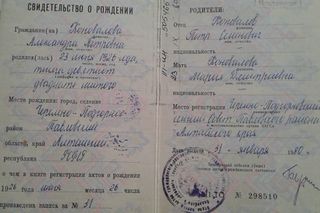 СВИДЕТЕЛЬСТВО О РОЖДЕНИИ
Гражданин(ка) Коновалова
Александра Петровна
родилась(лся) 23 июня 1926 года,
тысяча девятьсот
двадцать шестого
Место рождения: город, селение
район Павловский
область, край Алтайский
республика РСФСР
о чем в книге регистрации актов о рождении
1926 года месяца 26 числа
произведена запись за № 31
РОДИТЕЛИ:
Отец Коновалов
Петр Семенович
национальность
Мать Коновалова
Мария Дмитриевна
национальность
Место регистрации
сельский Совет Павловского района
Алтайского края
31 января 1980 г.
№ 298510